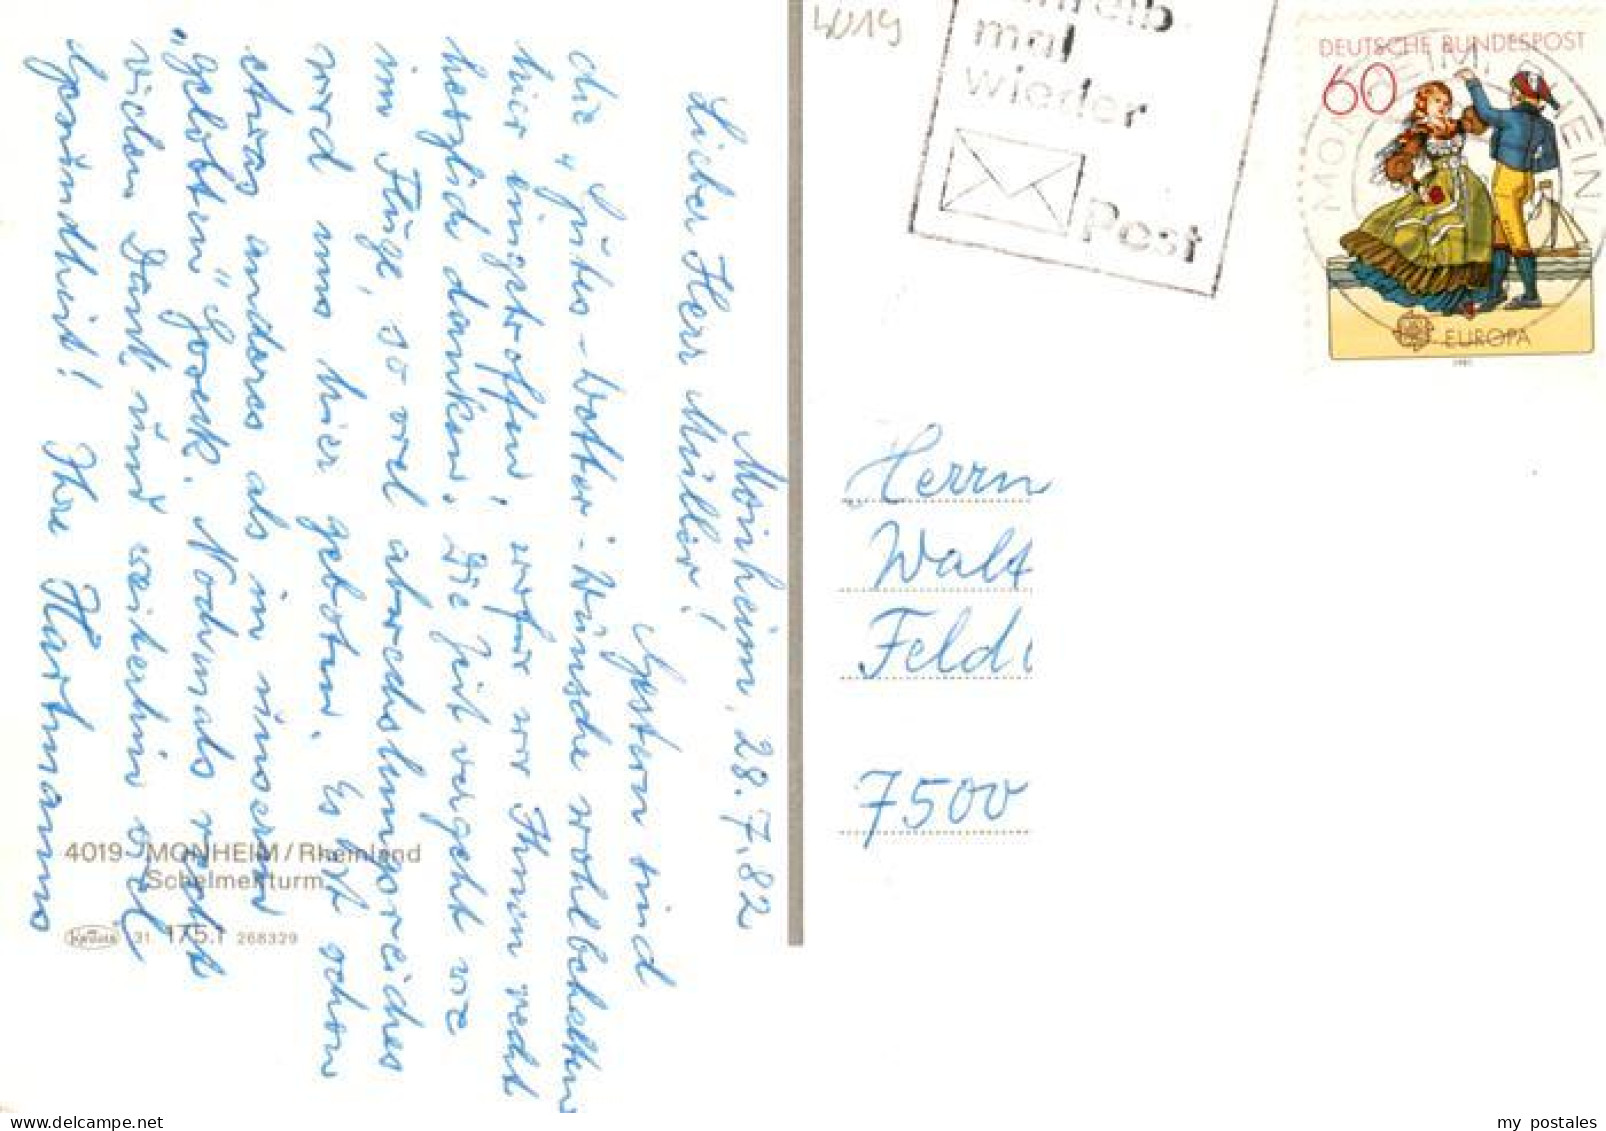 Monheim, 28.7.82
Lieber Herr Müller!
Gestern sind
die "Gutes-Wetter-Wünsche wohlbehalten
hier eingetroffen, wofür wir Ihnen recht
herzlich danken. Die Zeit vergeht wie
im Fluge, so viel abwechslungsreiches
wird uns hier geboten. Es ist schon
etwas anderes als in unserm
"gelobten"
Nochmals recht
vielen Dank und weiterhin viel
Gesundheit! Ihre Hartmanns
4019 MONHEIM/Rheinland
Schelmenturm
31 175.1 268329
4019
mal
wieder
Post
DEUTSCHE BUNDESPOST
60
EUROPA
1981
MONHEIM, RHEINL
Herrn
Walt
Feld
7500
my postales